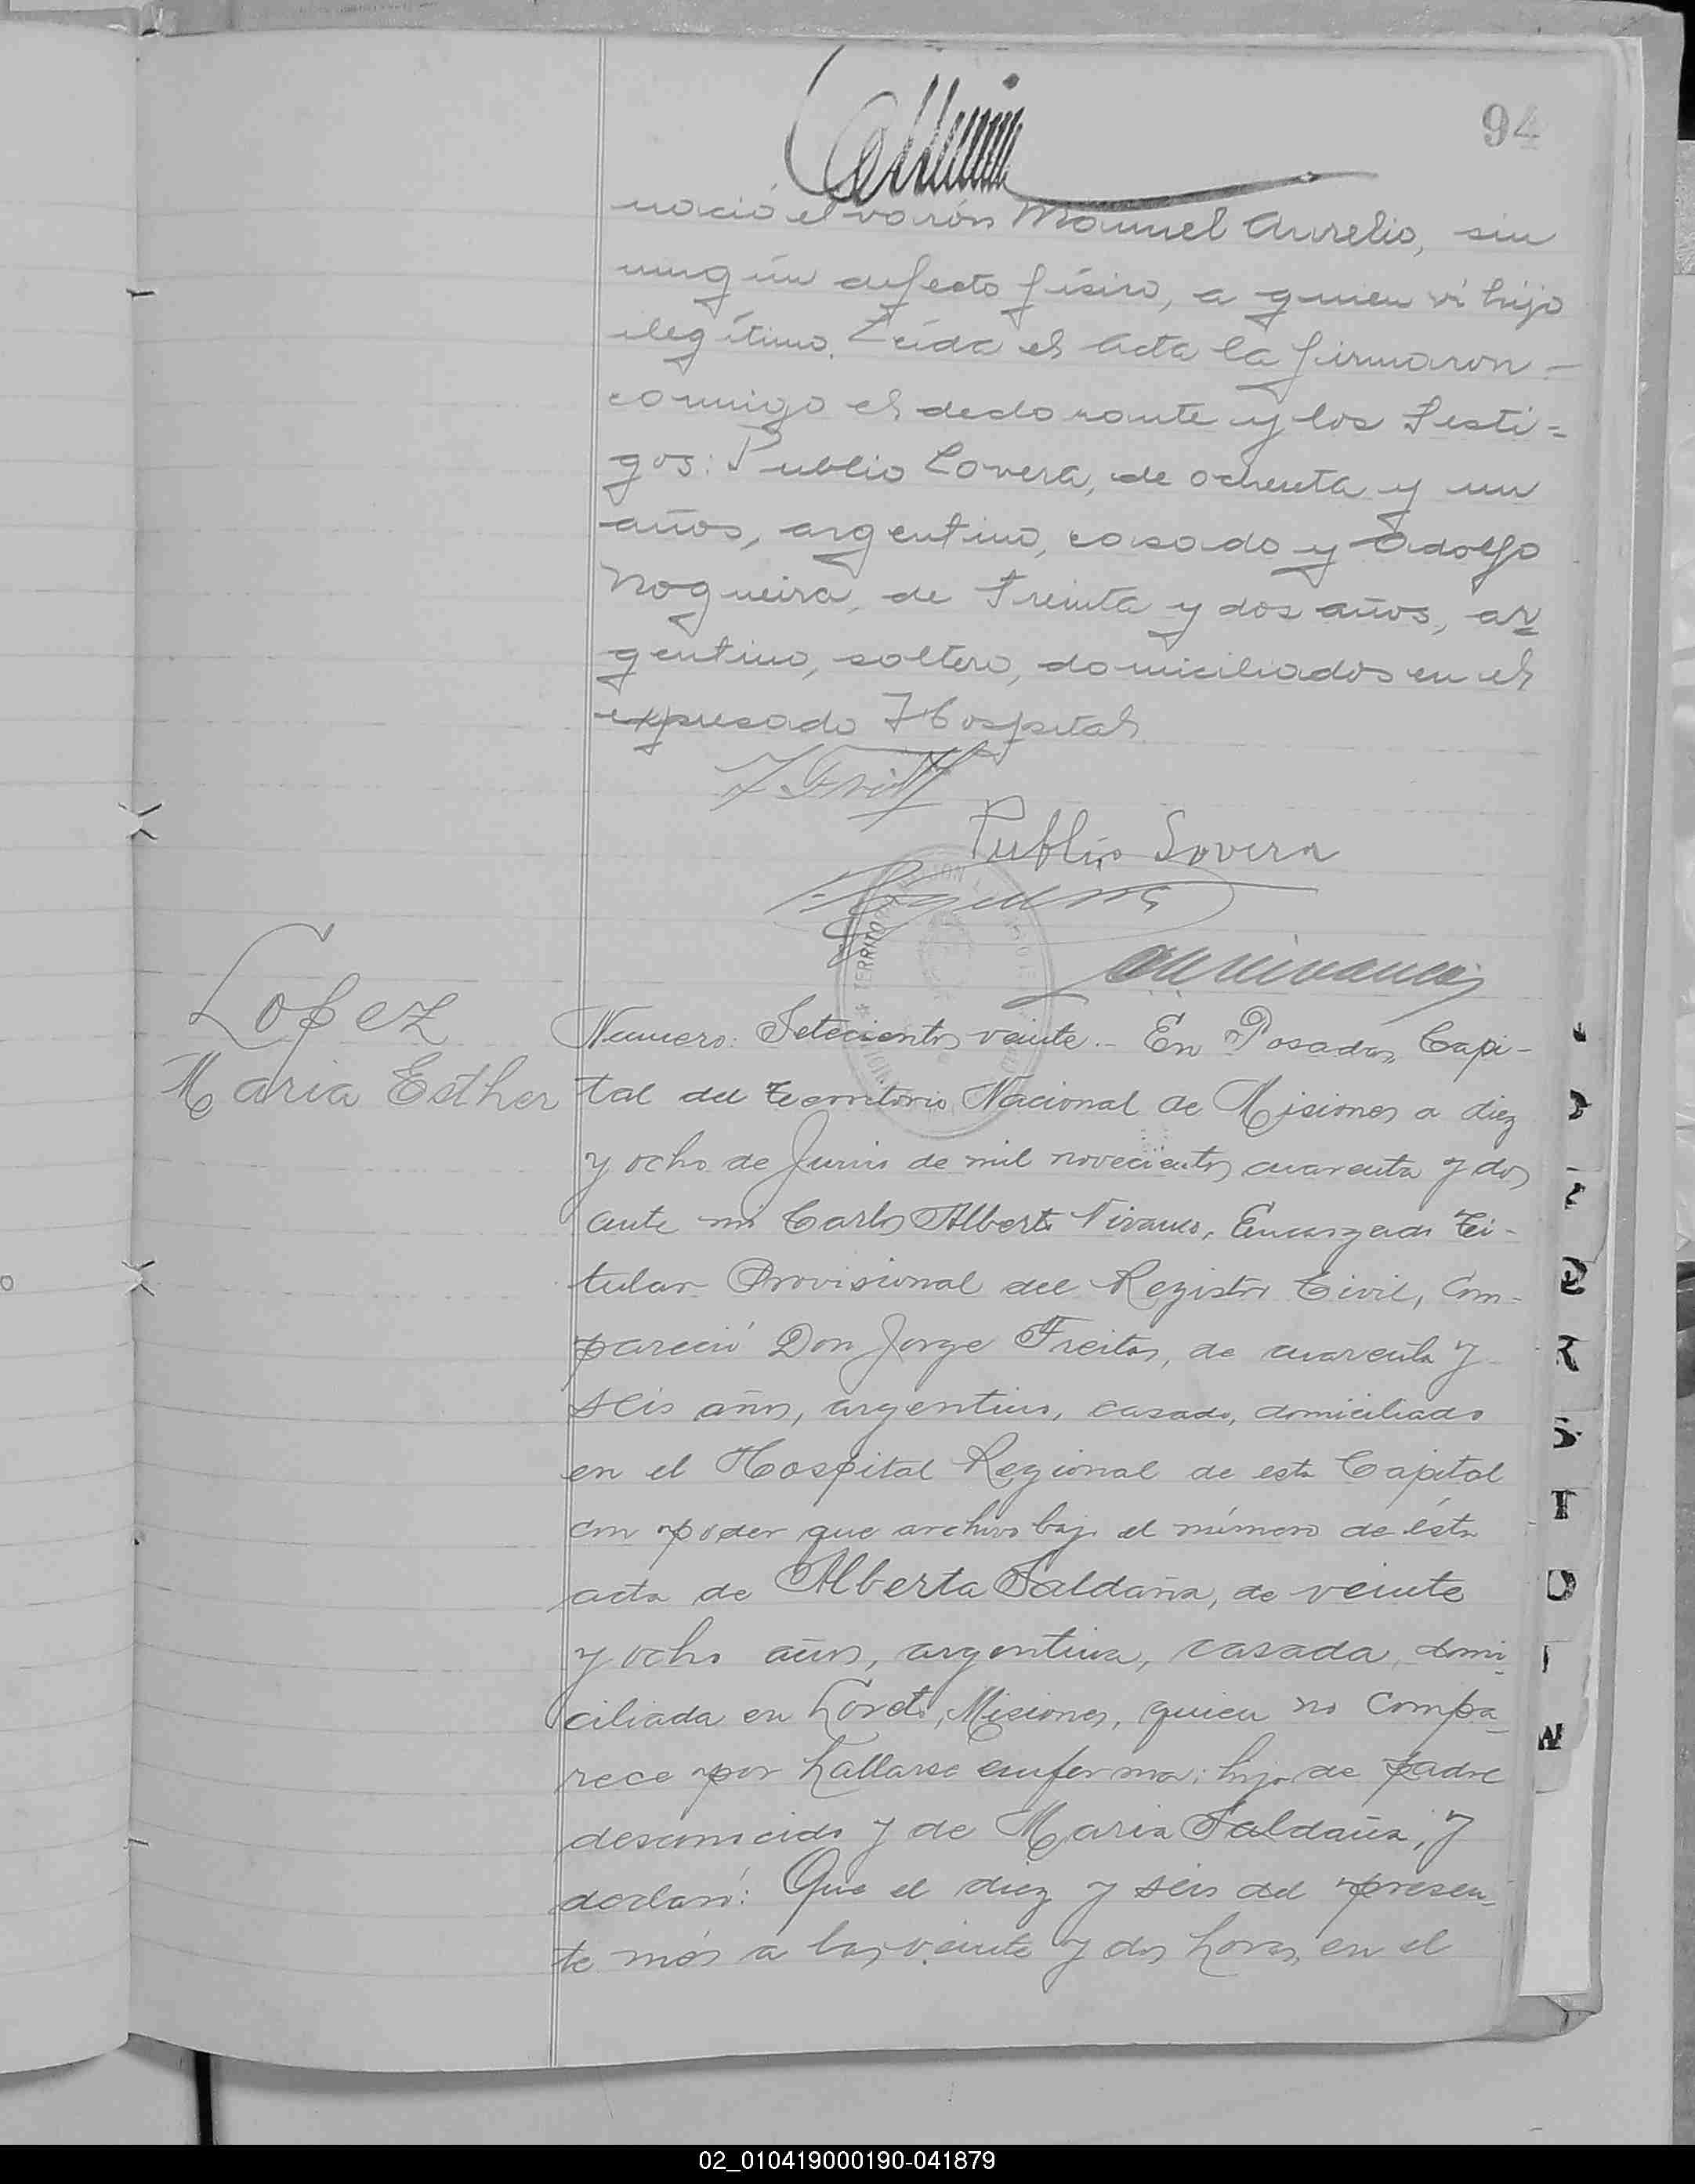 94
nació el varón Manuel Aurelio, sin
ningún defecto físico, a quien vi hijo
ilegítimo. Leída el acta la firmaron -
conmigo el declarante y los Testi=
gos: Publio Lovera, de ochenta y un
años, argentino, casado y Adolfo
Nogueira, de Treinta y dos años, ar
gentino, soltero, domiciliados en el
expresado Hospital
Publio Lovera
TERRITO
Lopez
Maria Esther
Numero: Setecientos veinte.- En Posadas, Capi-
tal del territorio Nacional de Misiones a diez
y ocho de Junio de mil novecientos cuarenta y dos
ante mi Carlos Alberto Vivanco, Encargado Ti-
tular Provisional del Registro Civil, Com-
pareció Don Jorge Freitas, de cuarenta y
seis años, argentino, casado, domiciliado
en el Hospital Regional de esta Capital
con poder que archivo bajo el número de ésta
acta de Alberta Saldaña, de veinte
y ocho años, argentina, casada, domi-
ciliada en Loreto, Misiones, quien no compa-
rece por hallarse enferma; hija de padre
desconocido y de Maria Saldaña, y
declaró: Que el diez y seis del presen-
te mes a las veinte y dos horas, en el
R
S
T
W
02_010419000190-041879